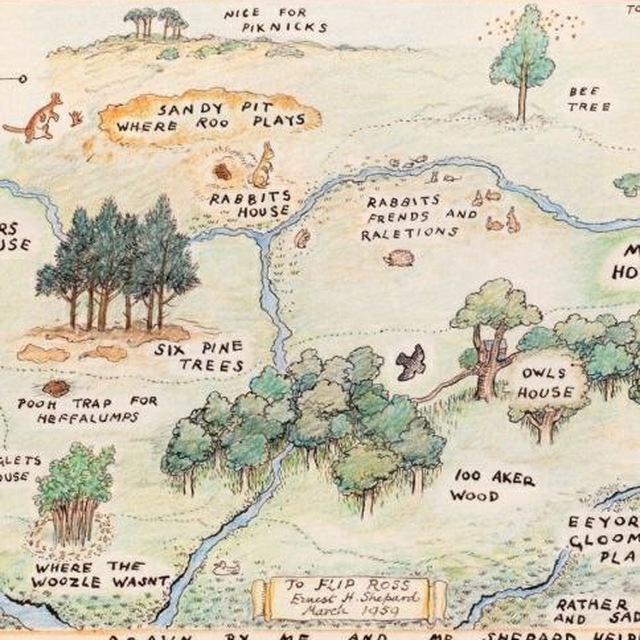 NICE FOR
PIKNICKS
TO
BEE
TREE
SANDY PIT
WHERE ROO PLAYS
RABBITS
HOUSE
RABBITS
FRENDS AND
RALETIONS
RS
USE
M
HO
SIX PINE
TREES
OWLS
HOUSE
POOH TRAP FOR
HEFFALUMPS
GLETS
OUSE
100 AKER
WOOD
EEYOR
GLOOM
PLA
WHERE THE
WOOZLE WASNT
TO FLIP ROSS
Ernest H. Shepard
March 1959
RATHER
AND SAD
DRAWN BY ME AND MR SHEPARD HELPD